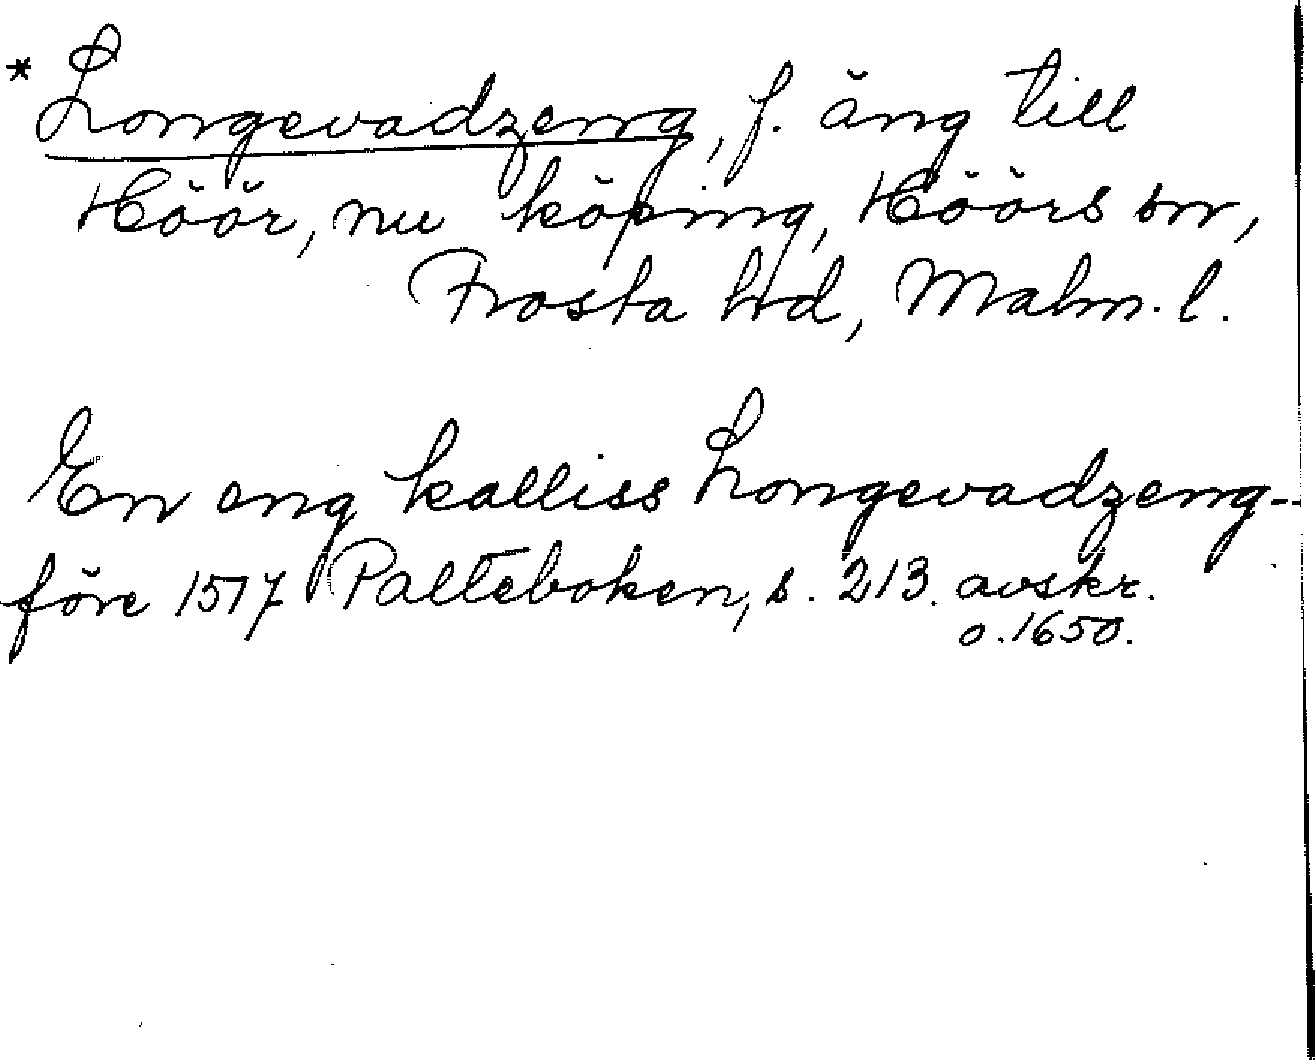 * Longevadzeng, f. äng till
Höör, nu köping, Höörs sn,
Frosta hd, Malm. l.
En eng kalliss Longevadzeng -
före 1517 Palteboken, s. 213. avskr.
o. 1650.